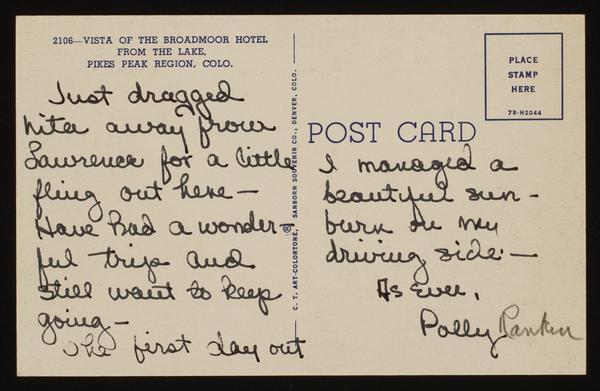 2106—VISTA OF THE BROADMOOR HOTEL
FROM THE LAKE,
PIKES PEAK REGION, COLO.
Just dragged
Nita away from
Lawrence for a little
fling out here—
Have had a wonder-
ful trip and
still want to keep
going—
The first day out
C. T. ART-COLORTONE, ® SANBORN SOUVENIR CO., DENVER, COLO.
PLACE
STAMP
HERE
7B-H2044
POST CARD
I managed a
beautiful sun-
burn on my
driving side—
As ever,
Polly Rankin